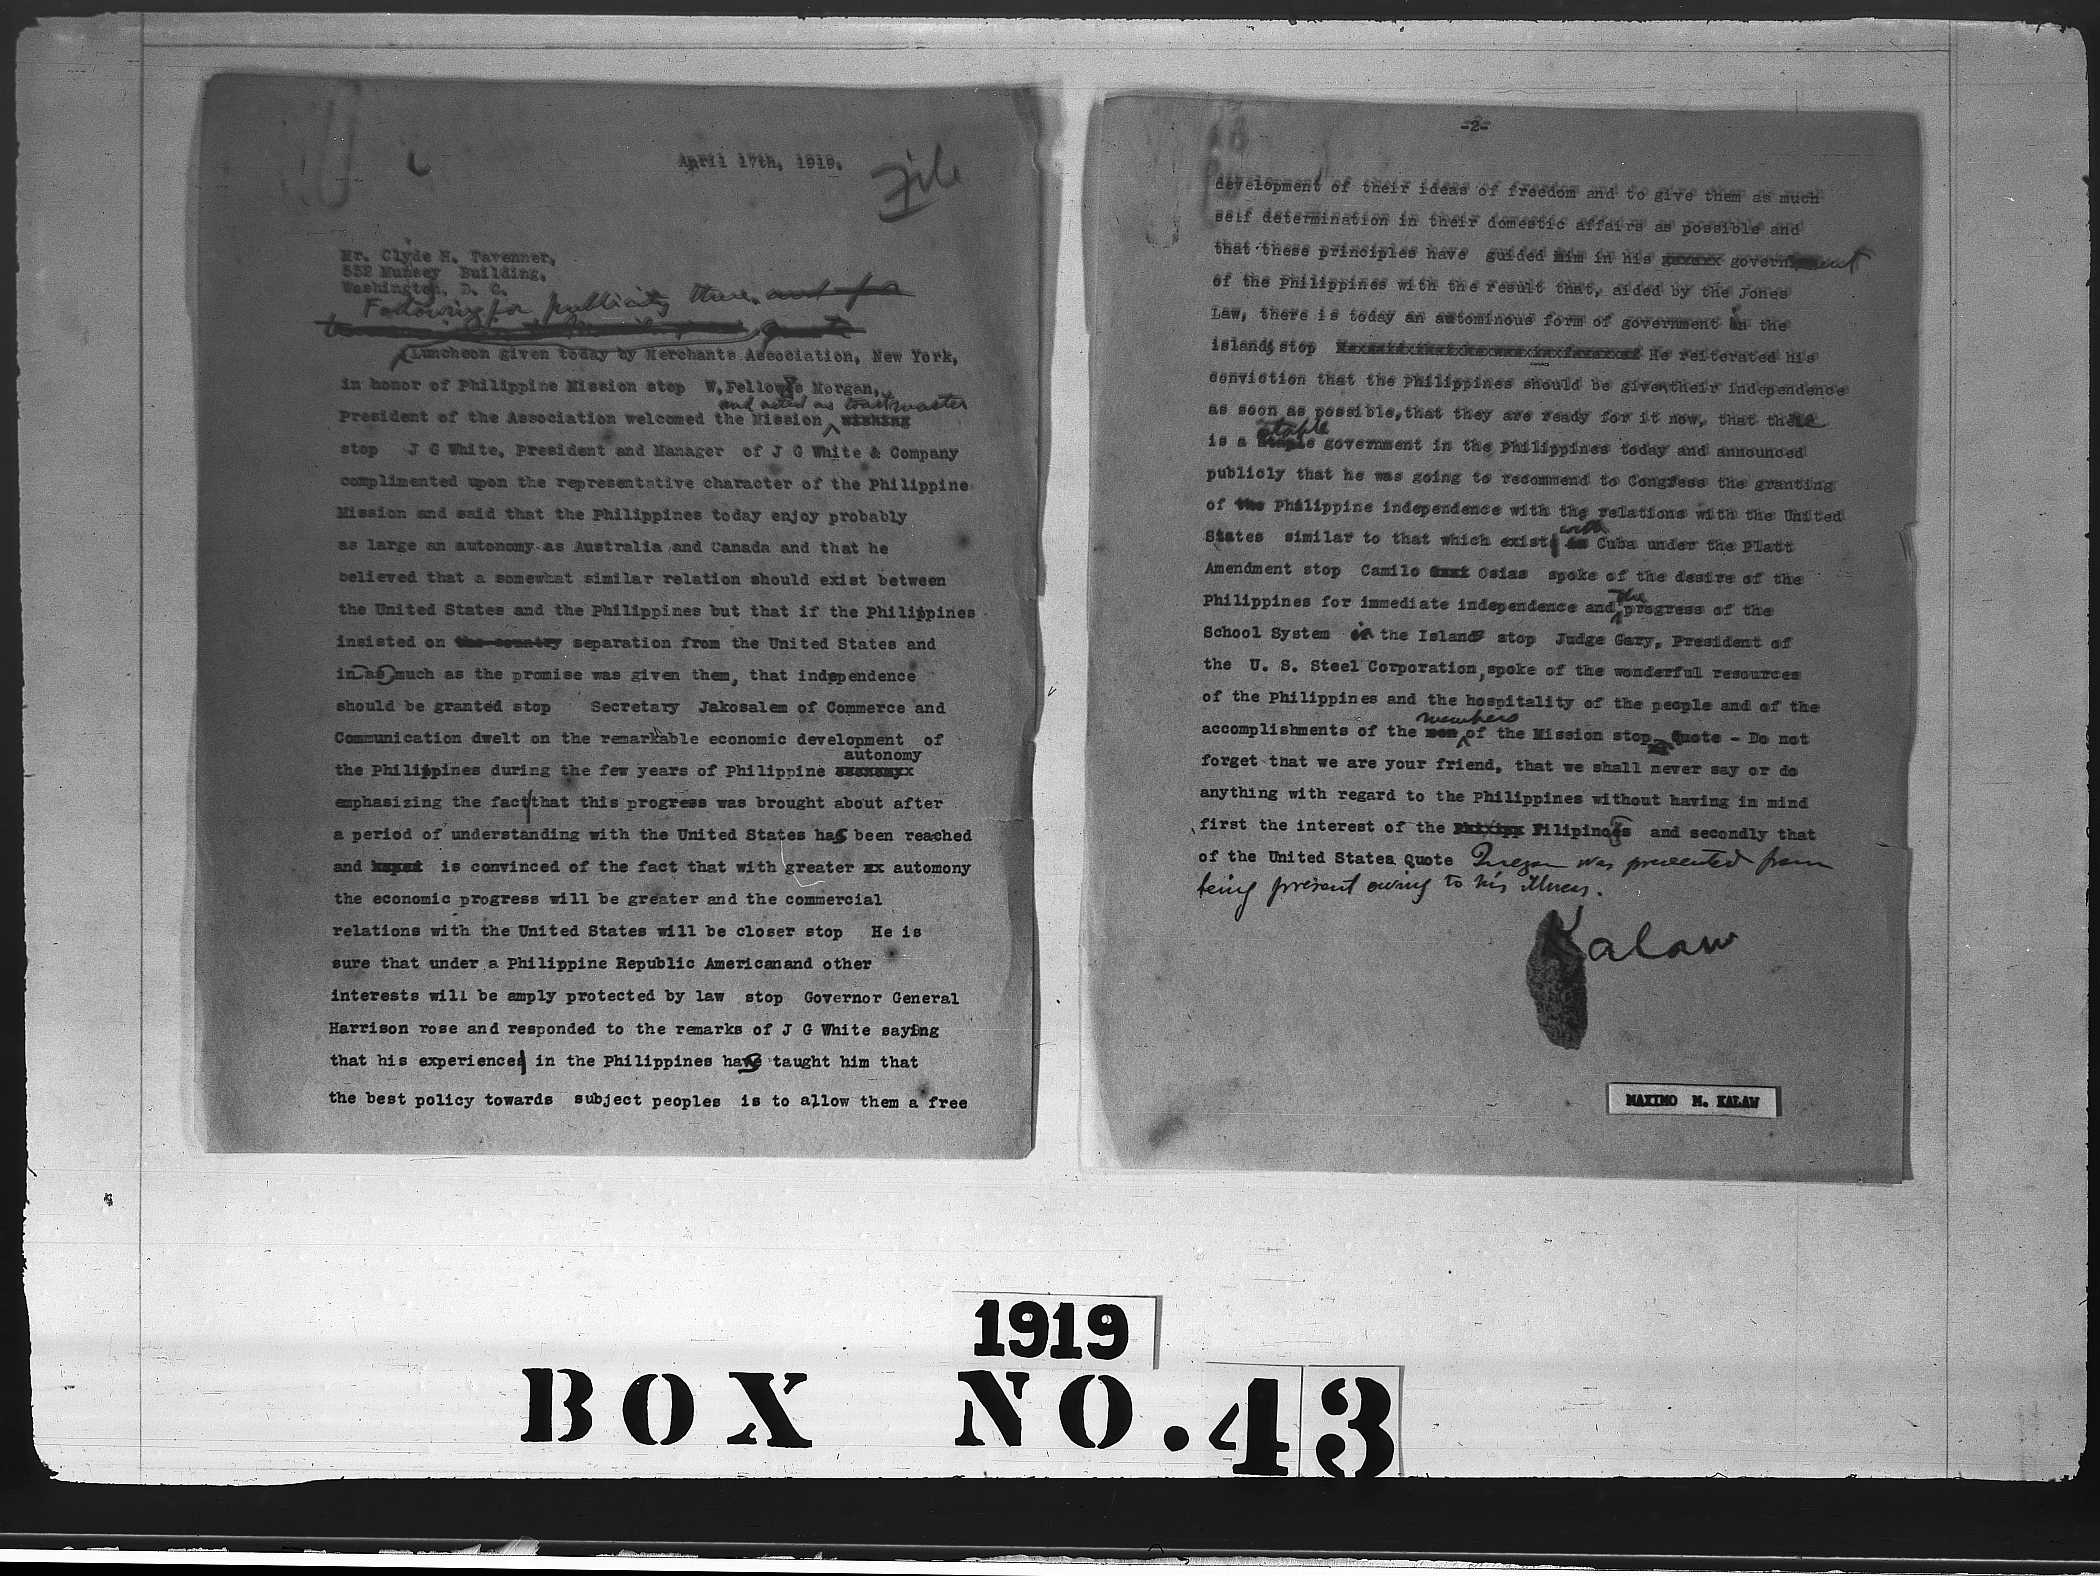 April 17th, 1919.
File
Mr. Clyde H. Tavenner,
532 Munsey Building,
Washington, D. C.
Following for publicity there and for
quote
Luncheon given today by Merchants Association, New York,
in honor of Philippine Mission stop W.Fellows Morgan,
and acted as toastmaster
President of the Association welcomed the Mission
stop J G White, President and Manager of J G White & Company
complimented upon the representative character of the Philippine
Mission and said that the Philippines today enjoy probably
as large an autonomy as Australia and Canada and that he
believed that a somewhat similar relation should exist between
the United States and the Philippines but that if the Philippines
insisted on the country separation from the United States and
in as much as the promise was given them, that independence
should be granted stop Secretary Jakosalem of Commerce and
Communication dwelt on the remarkable economic development of
autonomy
the Philippines during the few years of Philippine
emphasizing the fact that this progress was brought about after
a period of understanding with the United States has been reached
and is convinced of the fact that with greater xx automony
the economic progress will be greater and the commercial
relations with the United States will be closer stop He is
sure that under a Philippine Republic Americanand other
interests will be amply protected by law stop Governor General
Harrison rose and responded to the remarks of J G White saying
that his experience in the Philippines has taught him that
the best policy towards subject peoples is to allow them a free
-2-
development of their ideas of freedom and to give them as much
self determination in their domestic affairs as possible and
that these principles have guided him in his government
of the Philippines with the result that, aided by the Jones
Law, there is today an autominous form of government in the
islands stop He reiterated his
conviction that the Philippines should be given their independence
as soon as possible, that they are ready for it now, that there
stable
is a government in the Philippines today and announced
publicly that he was going to recommend to Congress the granting
of the Philippine independence with the relations with the United
with
States similar to that which exist in Cuba under the Platt
Amendment stop Camilo Osias spoke of the desire of the
the
Philippines for immediate independence and progress of the
School System in the Islands stop Judge Gary, President of
the U. S. Steel Corporation, spoke of the wonderful resources
of the Philippines and the hospitality of the people and of the
members
accomplishments of the men of the Mission stop Quote - Do not
forget that we are your friend, that we shall never say or do
anything with regard to the Philippines without having in mind
first the interest of the Filipinos and secondly that
of the United States Quote Quezon was prevented from
being present owing to his illness.
Kalaw
MAXIMO M. KALAW
1919
BOX NO.43